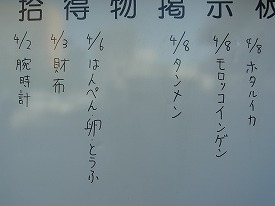 拾得物掲示板
4/2 腕時計
4/3 財布
4/6 はんぺん・卵とうふ
4/8 タンメン
4/8 モロッコインゲン
4/8 ホタルイカ